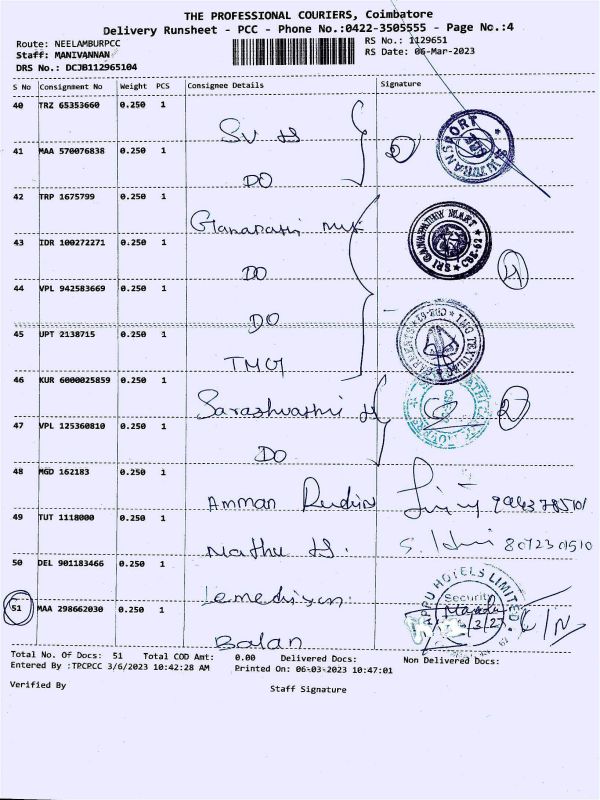 THE PROFESSIONAL COURIERS, Coimbatore
Delivery Runsheet - PCC - Phone No.:0422-3505555 - Page No.:4
Route: NEELAMBURPCC
Staff: MANIVANNAN
DRS No.: DCJB112965104
RS No.: 1129651
RS Date: 06-Mar-2023
S No Consignment No Weight PCS Consignee Details Signature
40 TRZ 65353660 0.250 1
SV H
2
41 MAA 570076838 0.250 1
DO
42 TRP 1675799 0.250 1
SRI GANAPATHY MART * CBE-62 *
43 IDR 100272271 0.250 1
DO
4
44 VPL 942583669 0.250 1
DO
45 UPT 2138715 0.250 1
TMG
46 KUR 6000025859 0.250 1
2
47 VPL 125360810 0.250 1
DO
48 MGD 162183 0.250 1
Amman
49 TUT 1118000 0.250 1
Mathu H.
50 DEL 901183466 0.250 1
HOTELS LIMITED
Security
51 MAA 298662030 0.250 1
Balan
Total No. Of Docs: 51 Total COD Amt: 0.00 Delivered Docs: Non Delivered Docs:
Entered By :TPCPCC 3/6/2023 10:42:28 AM Printed On: 06-03-2023 10:47:01
Verified By
Staff Signature